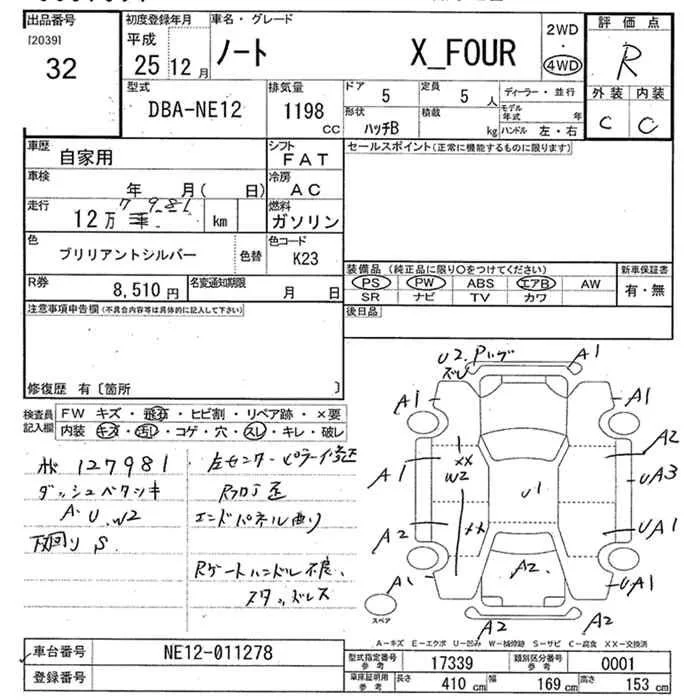 出品番号 初度登録年月 車名・グレード 評価点
[2039] 32 平成 25 12月 ノート X_FOUR 2WD・4WD R
型式 DBA-NE12 排気量 1198 CC
ドア 5 定員 5人 ディーラー・並行
形状 ハッチB 積載 kg モデル年式 年 ハンドル 左・右
外装 C 内装 C
車歴 自家用 シフト FAT
セールスポイント(正常に機能するものに限ります)
車検 年 月( 日) 冷房 AC
走行 12万 7981 km 燃料 ガソリン
色 ブリリアントシルバー 色替 色コード K23
装備品 (純正品に限り○をつけてください) 新車保証書
PS PW ABS エアB AW 有・無
SR ナビ TV カワ
R券 8,510円 名変通知期限 月 日
後日品
注意事項申告欄(不具合内容等は具体的に記入して下さい)
修復歴 有〔箇所 〕
検査員記入欄 FW キズ・飛石・ヒビ割・リペア跡・×要
内装 キズ・汚レ・コゲ・穴・スレ・キレ・破レ
127981
ダッシュベタツキ
A U W2
下回り S
左センターピラー
エンドパネル曲り
Rゲートハンドル不良、
スタッドレス
U2 A1
A1 A1
A1 XX W2 A2
U1 UA3
A2 XX UA1
A1 A2 UA1
スペア
A2 A2
A-キズ E-エクボ U-凹み W-補修跡 S-サビ C-腐食 XX-交換済
車台番号 NE12-011278
型式指定番号 参考 17339 類別区分番号 参考 0001
登録番号
車庫証明用 参考 長さ 410 cm 幅 169 cm 高さ 153 cm